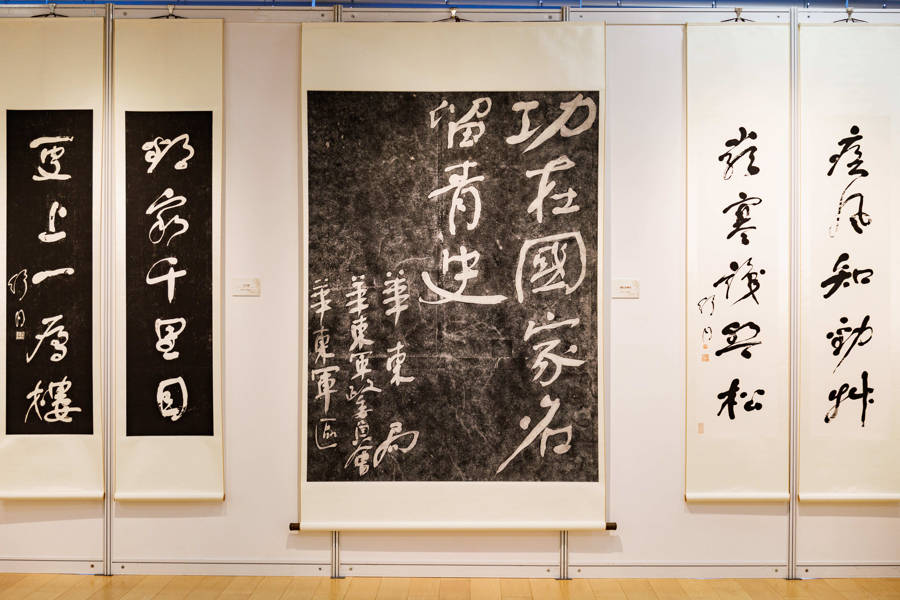 疾風知勁艸
嵗寒識松
舒同
功在國家名
留青史
華東局
華東軍政委員會
華東軍區
欲窮千里目
更上一層樓
舒同